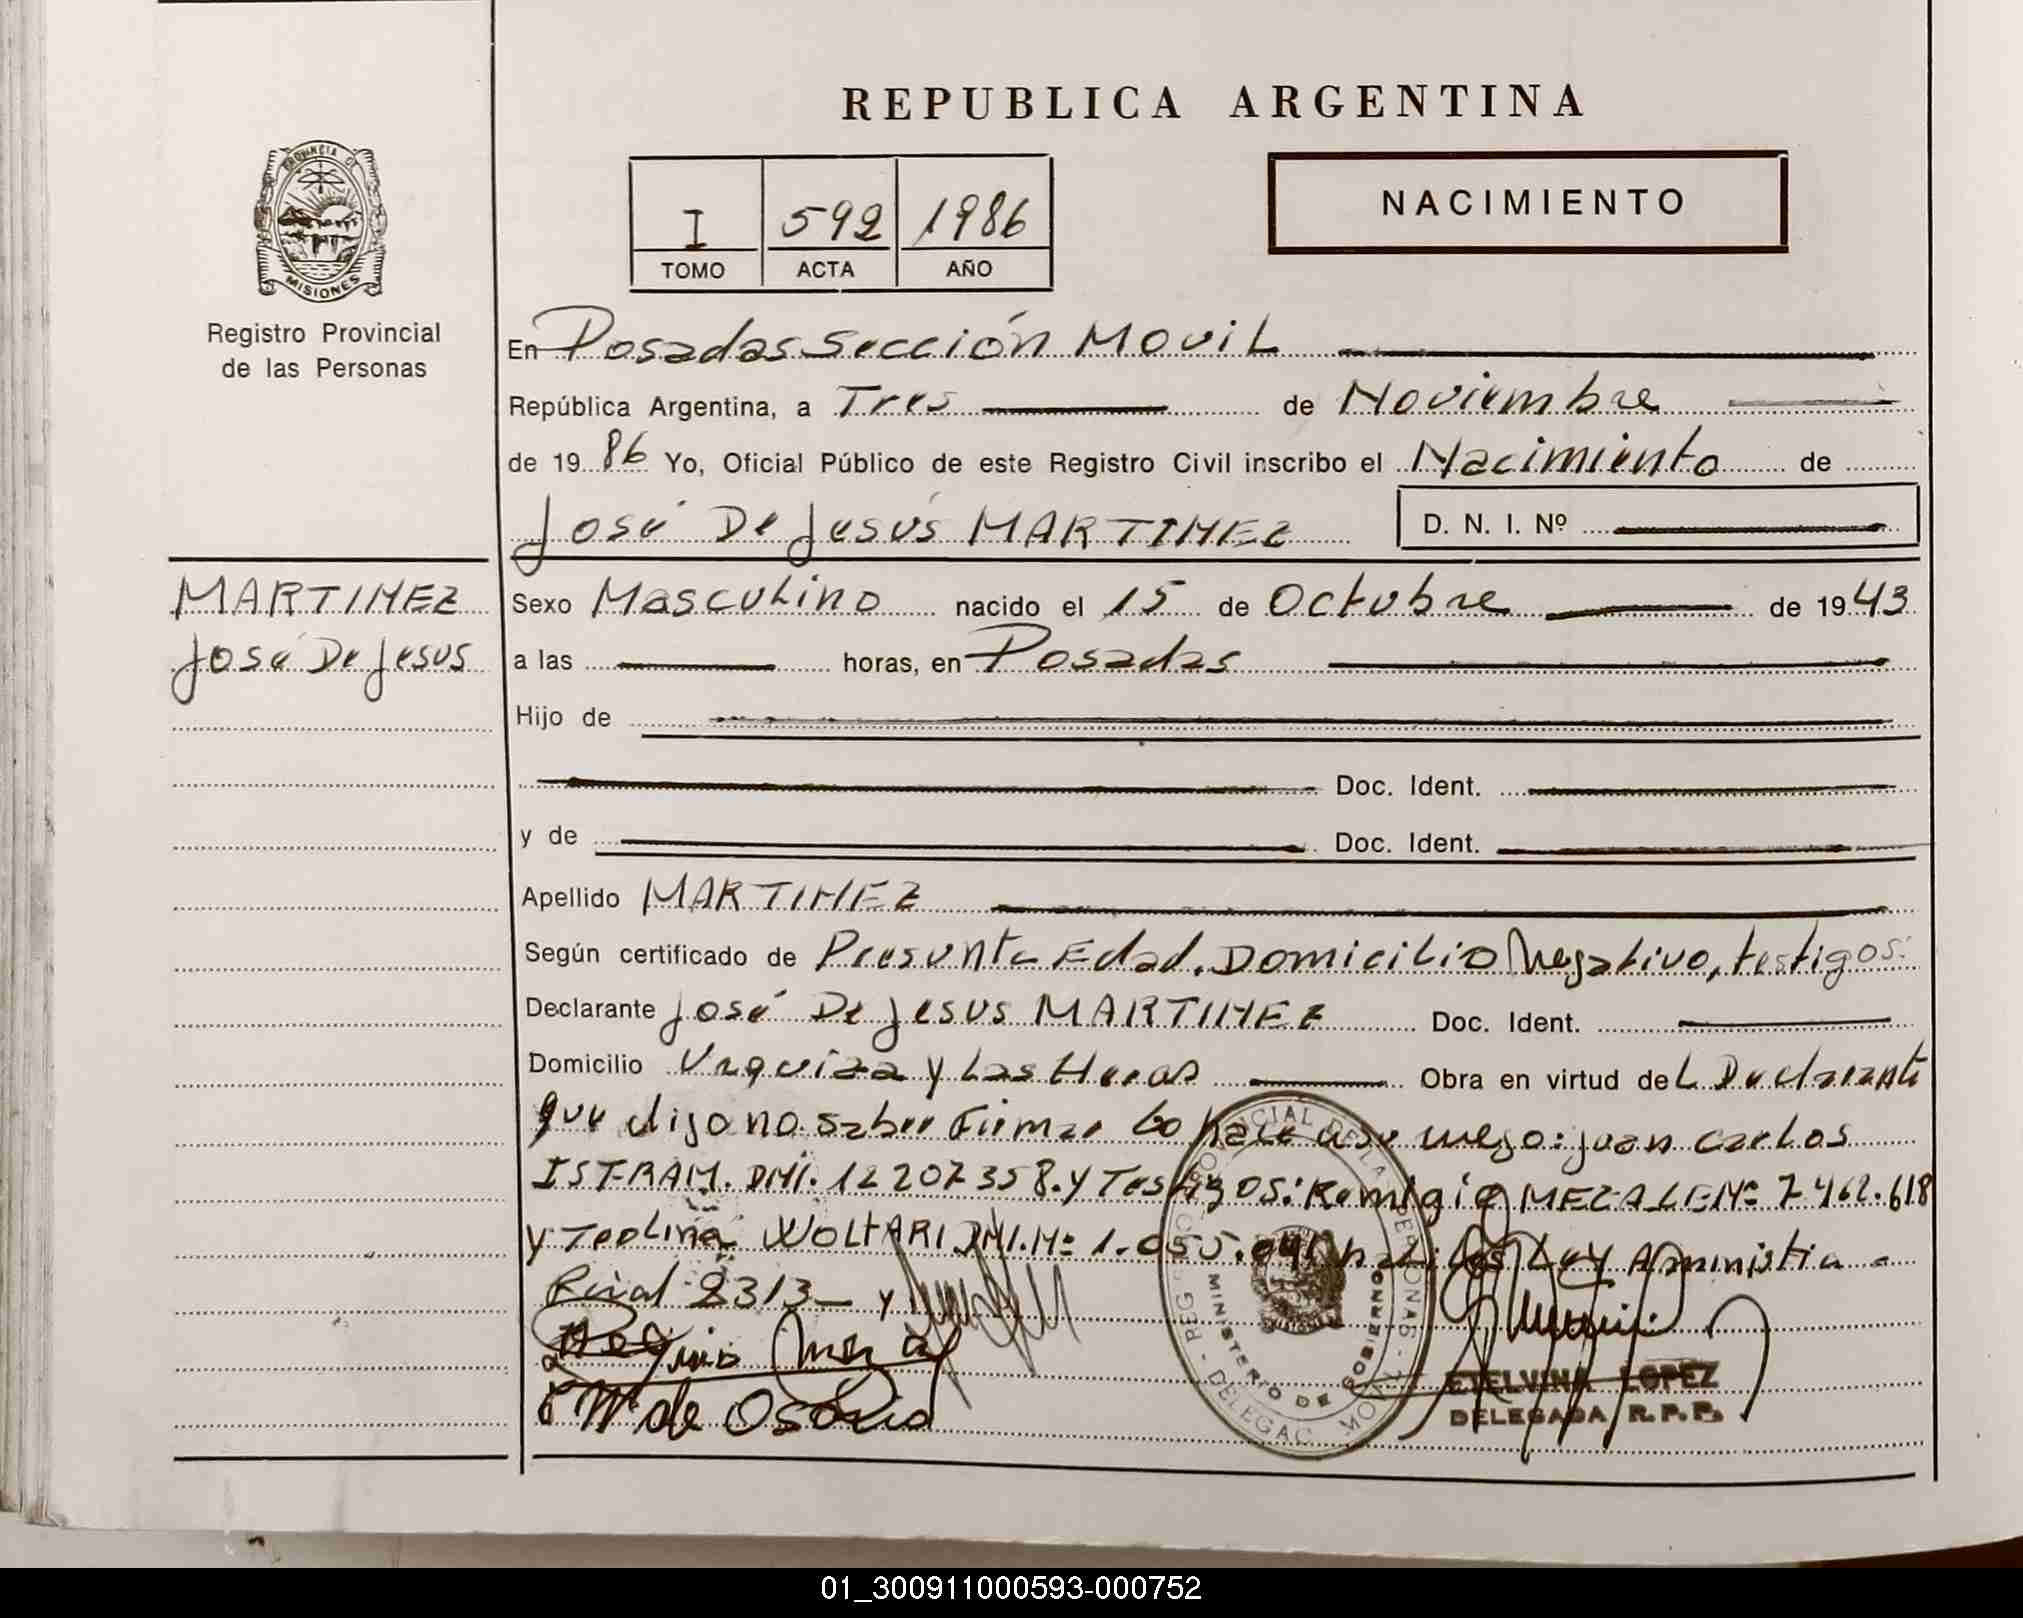 REPUBLICA ARGENTINA
NACIMIENTO
I 592 1986
TOMO ACTA AÑO
PROVINCIA DE
MISIONES
Registro Provincial
de las Personas
En Posadas Sección MoviL
República Argentina, a Tres de Noviembre
de 1986 Yo, Oficial Público de este Registro Civil inscribo el Nacimiento de
José De Jesús MARTINEZ D. N. I. Nº
MARTINEZ
José De Jesus
Sexo Masculino nacido el 15 de Octubre de 1943
a las horas, en Posadas
Hijo de
Doc. Ident.
y de Doc. Ident.
Apellido MARTINEZ
Según certificado de Presunta Edad. Domicilio Negativo, testigos:
Declarante José De Jesus MARTINEZ Doc. Ident.
Domicilio Urquiza y Las Heras Obra en virtud deL Declarante
que dijo no saber Firmar Lo hace a su ruego: Juan Carlos
DNI. 12 207 358. y Testigos: Remigio MEZA LE Nº 7.462.618
y DNI. Nº 1.055. Ley Administra
2313 y
de Osorio
REGISTRO PROVINCIAL DE LAS PERSONAS
MINISTERIO DE GOBIERNO
ETELVINA LOPEZ
DELEGADA R.P.P.
01_300911000593-000752